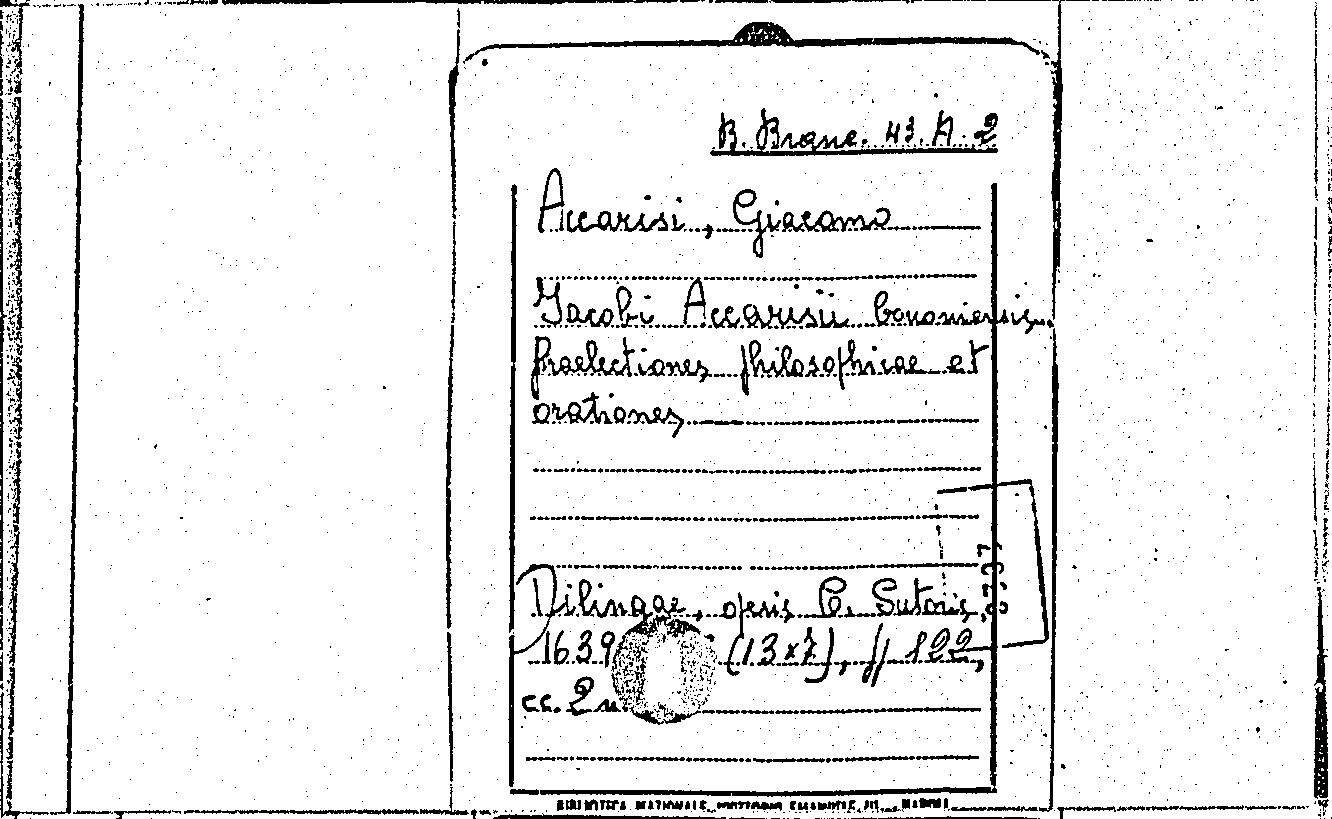 B. Branc. 43. A. 2
Accarisi, Giacomo
Jacobi Accarisii bononiensis
praelectiones philosophicae et
orationes
Dilingae, opis C. Sutoris,
1639 (13x7), pp 122,
cc. 2 n
BIBLIOTECA NAZIONALE VITTORIO EMANUELE III NAPOLI